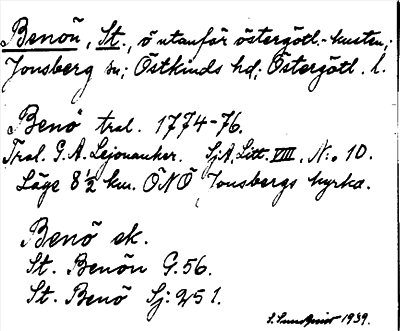 Benön, St., ö utanför östergötl.-kusten;
Jonsberg sn; Östkinds hd; Östergötl. l.
Benö tral. 1774-76.
Tral. G. A. Lejonanker. SjA, Litt. VIII, N:o 10.
Läge 8 1/2 km. ÖNÖ Jonsbergs kyrka.
Benö ek.
St. Benön G. 56.
St. Benö Sj: 251.
S. Sundqvist 1939.